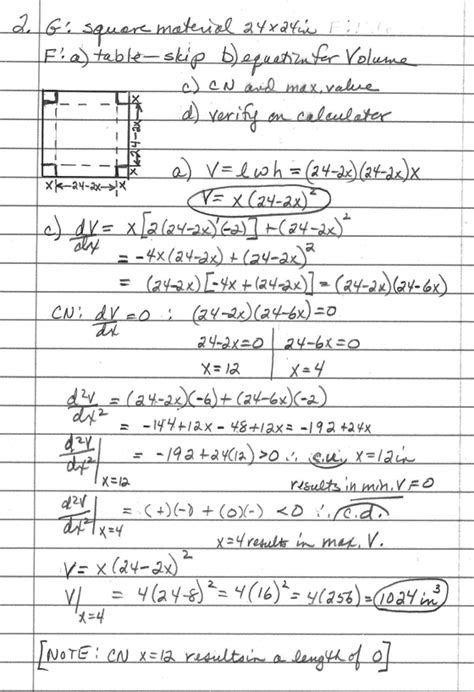 2. G: square material 24x24in
F: a) table - skip b) equation for Volume
c) CN and max. value
d) verify on calculator
x
24-2x
x
x 24-2x x
a) V = lwh = (24-2x)(24-2x)x
V = x(24-2x)²
c) dV/dx = x[2(24-2x)'(-2)] + (24-2x)²
= -4x(24-2x) + (24-2x)²
= (24-2x)[-4x+(24-2x)] = (24-2x)(24-6x)
CN: dV/dx = 0 : (24-2x)(24-6x)=0
24-2x=0 | 24-6x=0
x=12 | x=4
d²V/dx² = (24-2x)(-6)+(24-6x)(-2)
= -144+12x-48+12x = -192+24x
d²V/dx² | x=12 = -192+24(12) >0 ∴ c.u. x=12in
results in min. V=0
d²V/dx² | x=4 = (+)(-) + (0)(-) <0 ∴ c.d.
x=4 results in max. V.
V = x(24-2x)²
V| x=4 = 4(24-8)² = 4(16)² = 4(256) = 1024 in³
[NOTE: CN x=12 results in a length of 0]